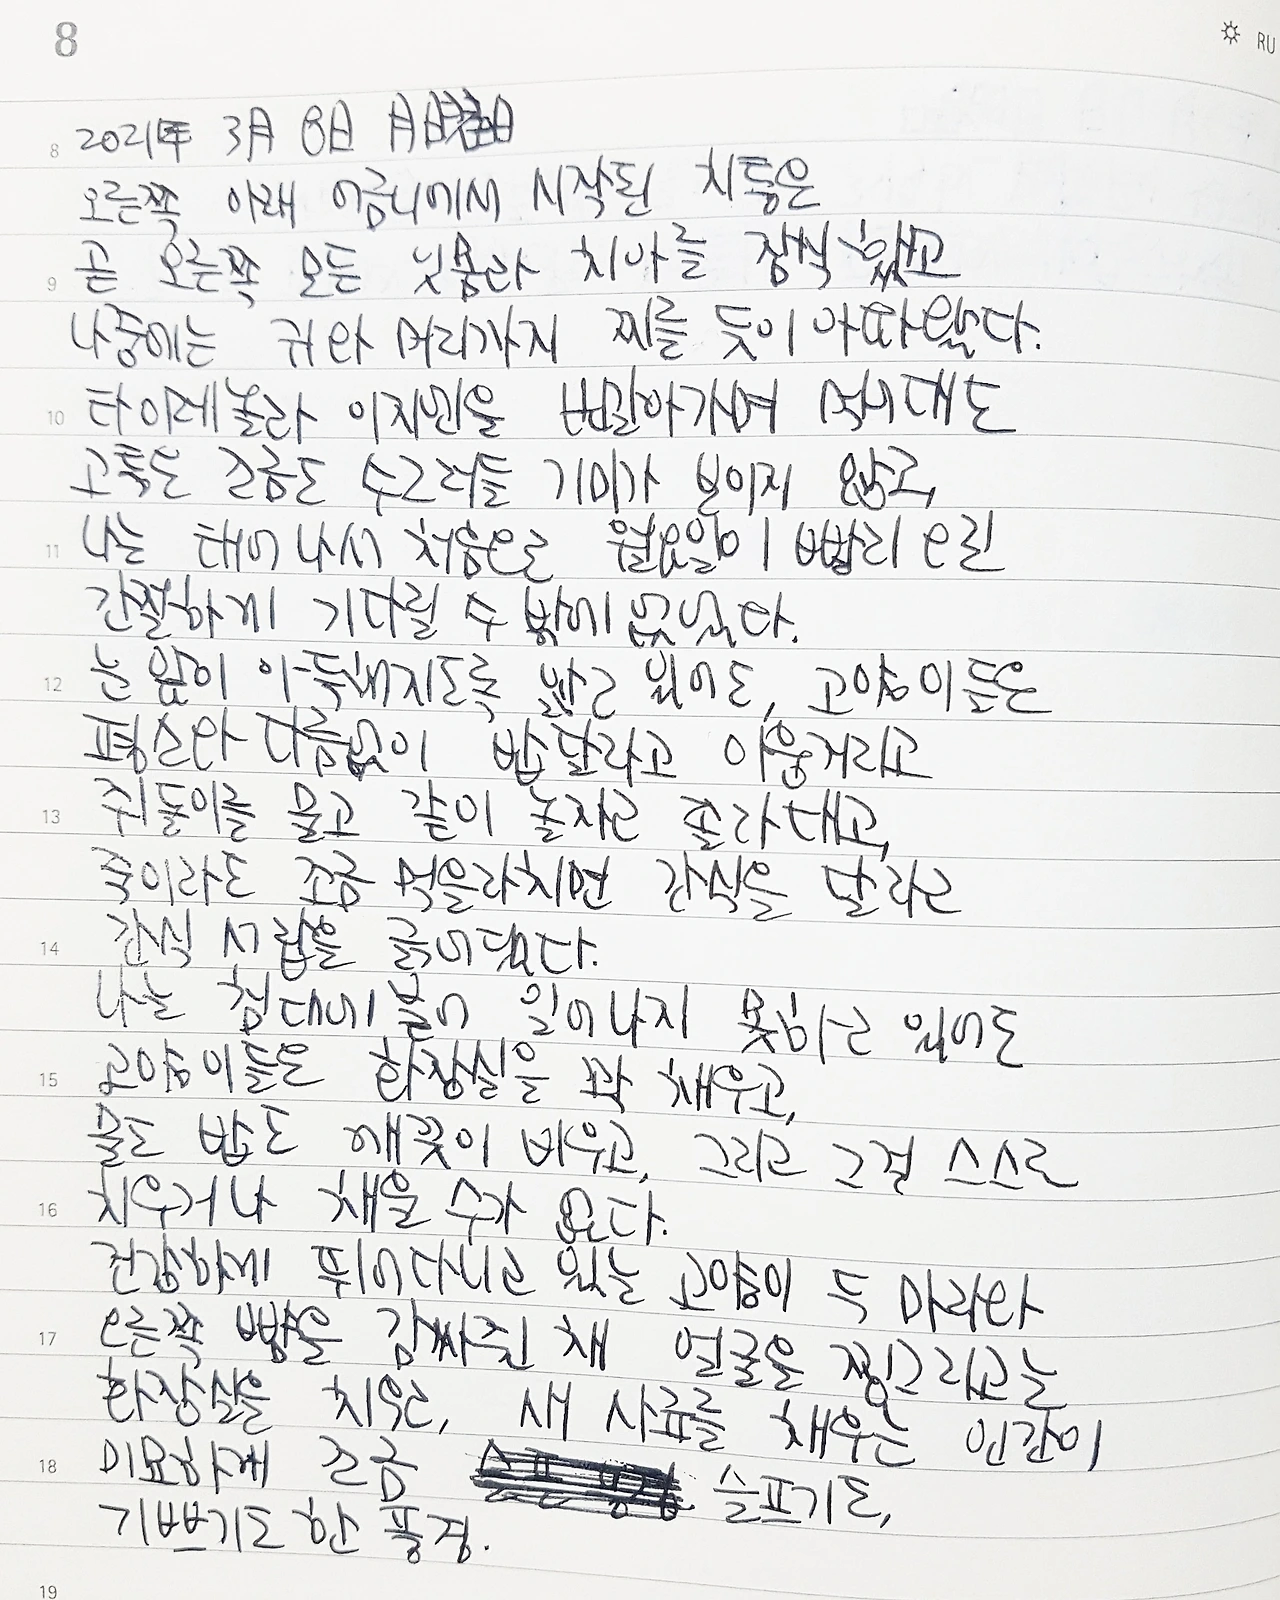 8
RU
8 2021年 3月 8日 月曜日
오른쪽 아래 어금니에서 시작된 치통은
9 곧 오른쪽 모든 잇몸과 치아를 잠식했고
나중에는 귀와 머리까지 찌를 듯이 아파왔다.
10 타이레놀과 이지엔을 번갈아가며 먹어대도
고통은 조금도 수그러들 기미가 보이지 않고,
11 나는 태어나서 처음으로 월요일이 빨리 오길
간절하게 기다릴 수 밖에 없었다.
12 눈 앞이 아득해지도록 앓고 있어도, 고양이들은
평소와 다름없이 밥 달라고 야옹거리고
13 쥐돌이를 물고 같이 놀자고 졸라대고,
죽이라도 조금 먹을라치면 간식을 달라고
14 간식 서랍을 긁어댔다.
나는 침대에 붙어 일어나지 못하고 있어도
15 고양이들은 화장실을 꽉 채우고,
물도 밥도 깨끗이 비우고, 그리고 그걸 스스로
16 치우거나 채울 수가 없다.
건강하게 뛰어다니고 있는 고양이 두 마리와
17 오른쪽 뺨을 감싸쥔 채 얼굴을 찡그리고는
화장실을 치우고, 새 사료를 채우는 인간이
18 미묘하게 조금 슬프기도,
기쁘기도 한 풍경.
19